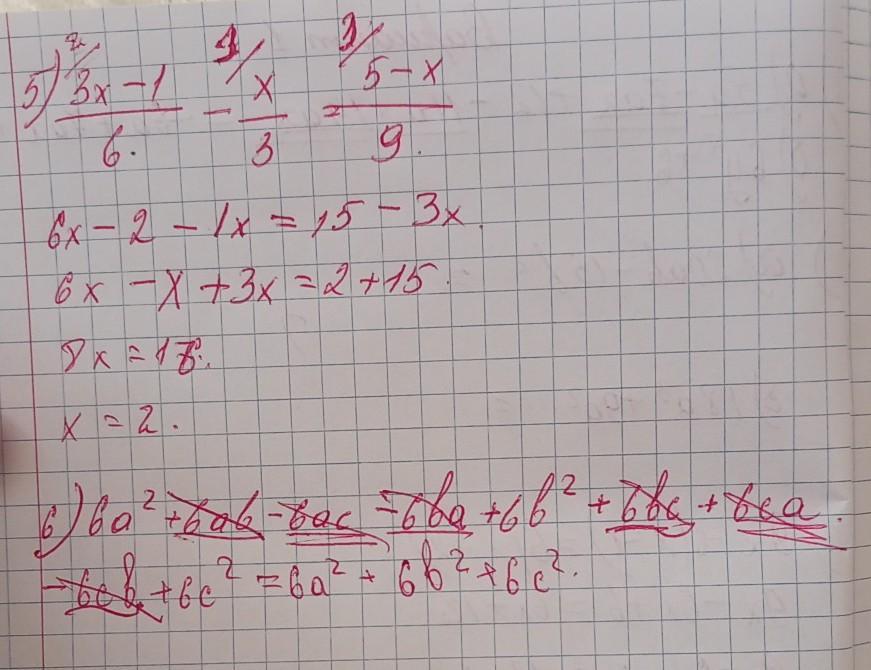 5) (3x-1)/6 - x/3 = (5-x)/9.
6x - 2 - 1x = 15 - 3x.
6x - x + 3x = 2 + 15.
8x = 18.
x = 2.
6) 6a² + 6ab - 6ac - 6ba + 6b² + 6bc + 6ca.
- 6cb + 6c² = 6a² + 6b² + 6c².